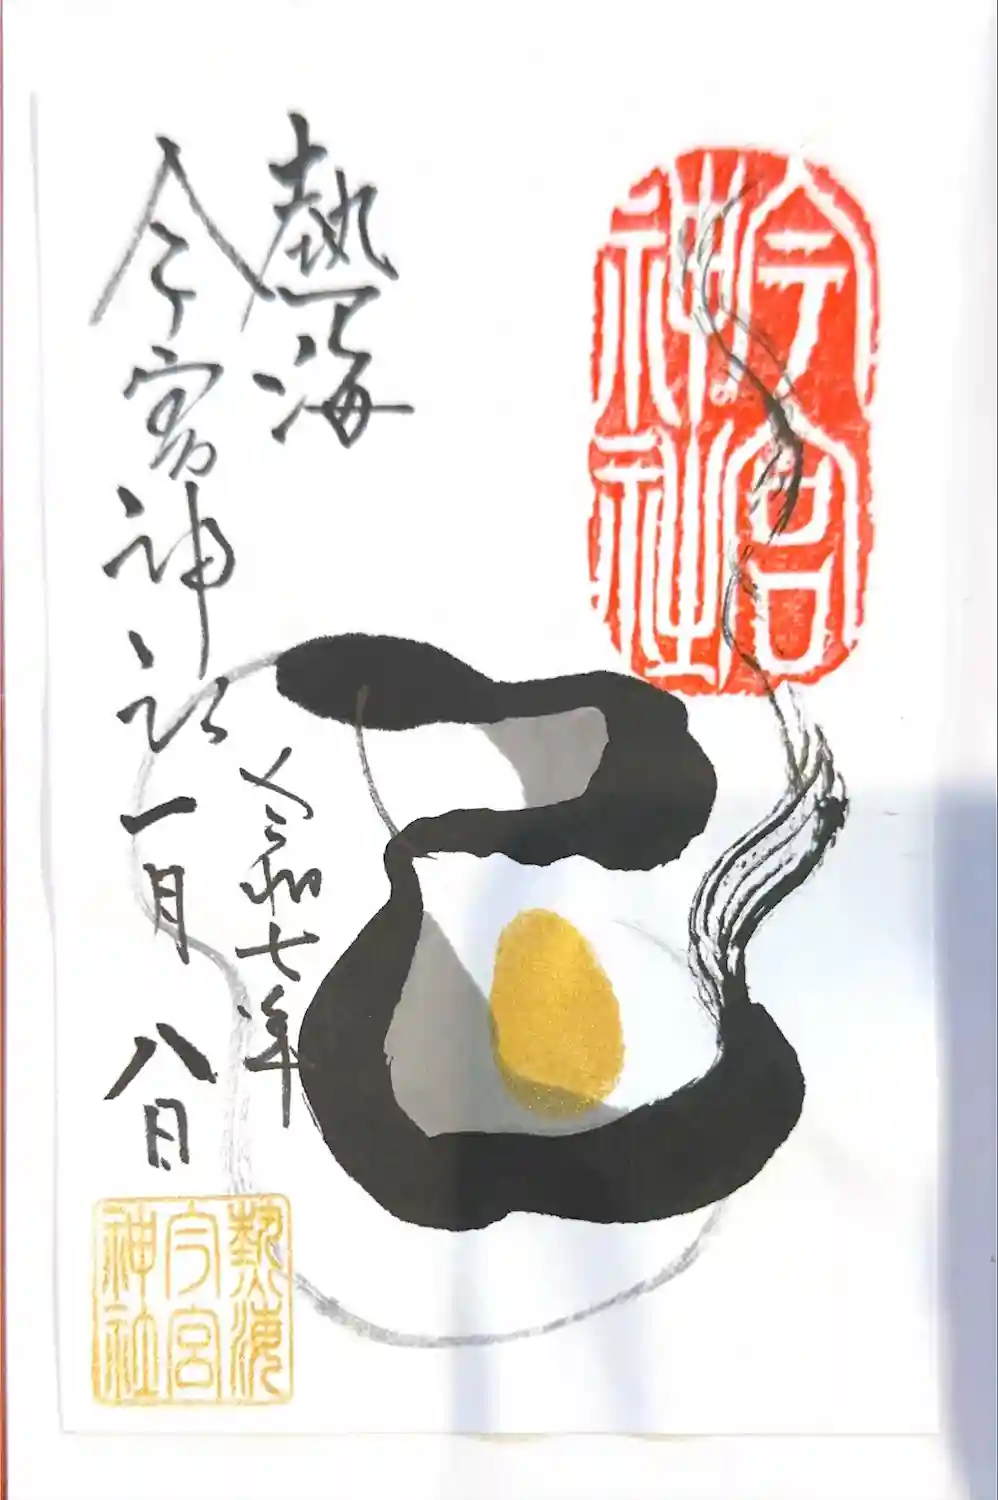 今宮
神社
熱海
今宮神社
令和七年
一月八日
熱海
今宮
神社